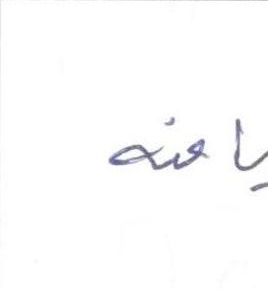 يامنه